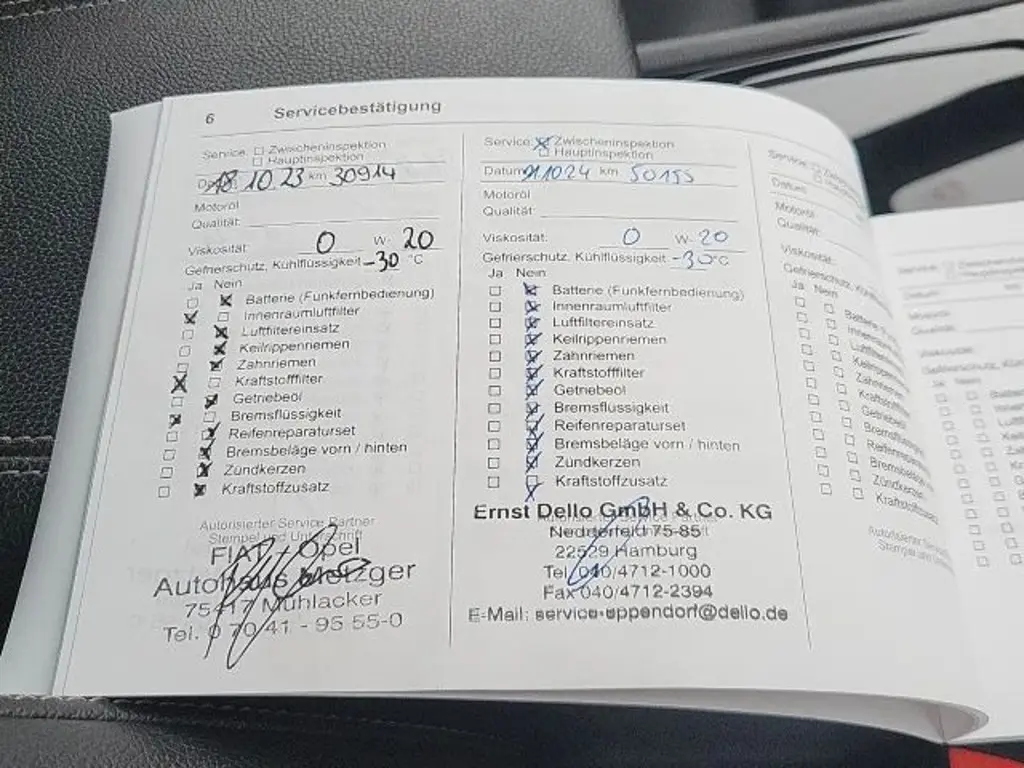 6 Servicebestätigung
Service: ☐ Zwischeninspektion
☐ Hauptinspektion
18.10.23 km 30914
Motoröl
Qualität:
Viskosität: 0 W- 20
Gefrierschutz, Kühlflüssigkeit -30 °C
Ja Nein
☐ ☒ Batterie (Funkfernbedienung)
☒ ☐ Innenraumluftfilter
☐ ☒ Luftfiltereinsatz
☐ ☒ Keilrippenriemen
☐ ☒ Zahnriemen
☒ ☐ Kraftstofffilter
☐ ☒ Getriebeöl
☒ ☐ Bremsflüssigkeit
☐ ☒ Reifenreparaturset
☐ ☒ Bremsbeläge vorn / hinten
☐ ☒ Zündkerzen
☐ ☒ Kraftstoffzusatz
Autorisierter Service Partner
Stempel und Unterschrift
FIAT - Opel
Autohaus Metzger
75417 Mühlacker
Tel. 0 70 41 - 95 55-0
Service: ☒ Zwischeninspektion
☐ Hauptinspektion
Datum 10.24 km 50155
Motoröl
Qualität:
Viskosität: 0 W- 20
Gefrierschutz, Kühlflüssigkeit -30°C
Ja Nein
☐ ☒ Batterie (Funkfernbedienung)
☐ ☒ Innenraumluftfilter
☐ ☒ Luftfiltereinsatz
☐ ☒ Keilrippenriemen
☐ ☒ Zahnriemen
☐ ☒ Kraftstofffilter
☐ ☒ Getriebeöl
☐ ☒ Bremsflüssigkeit
☐ ☒ Reifenreparaturset
☐ ☒ Bremsbeläge vorn / hinten
☐ ☒ Zündkerzen
☐ ☒ Kraftstoffzusatz
Ernst Dello GmbH & Co. KG
Nedderfeld 75-85
22529 Hamburg
Tel. 040/4712-1000
Fax 040/4712-2394
E-Mail: service-eppendorf@dello.de
Service
Datum
Motoröl
Qualität:
Viskosität:
Gefrierschutz,
Ja Nein
Autorisierter
Stempel
Service
Motoröl
Qualität
Viskosität
Ja Nein